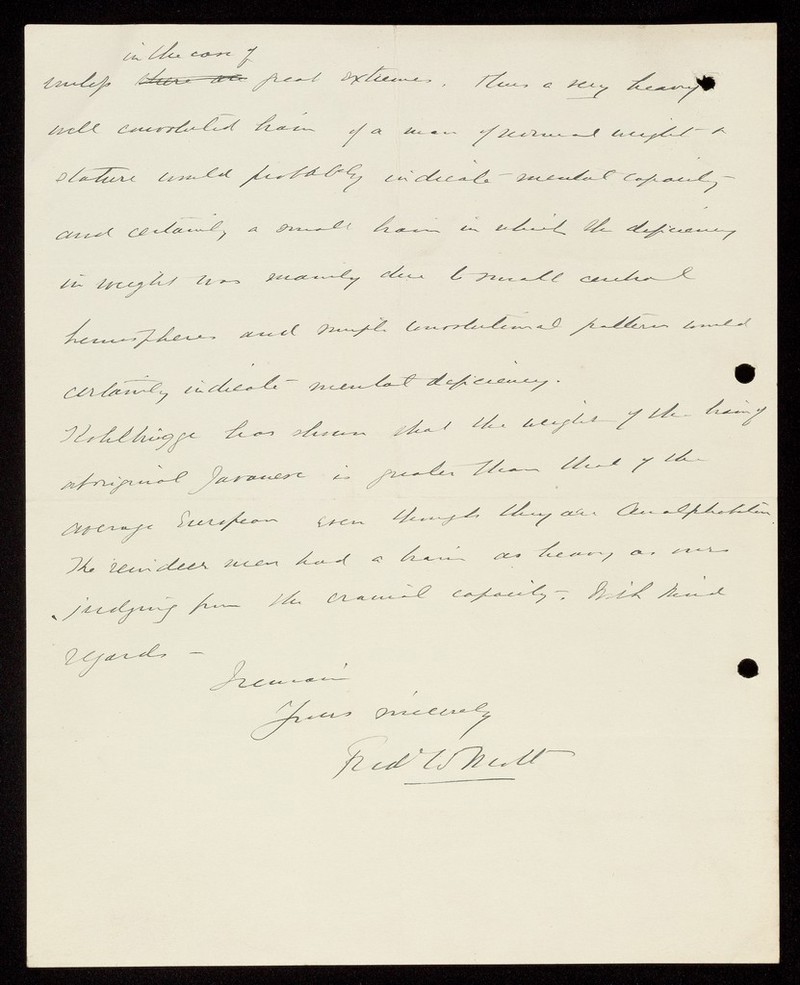 in the case of
unless there are great extremes. Thus a very heavy
well convoluted brain of a man of normal weight &
stature would probably indicate mental capacity
and certainly a small brain in which the deficiency
in weight was mainly due to small cerebral
hemispheres and simple convolutional pattern would
certainly indicate mental deficiency.
Kohlbrügge has shown that the weight of the brain of
aboriginal Javanese is greater than that of the
average European even though they are Analphabeten.
The reindeer men had a brain as heavy as ours
judging from the cranial capacity. With kind
regards –
I remain
Yours sincerely
Fredk W Mott